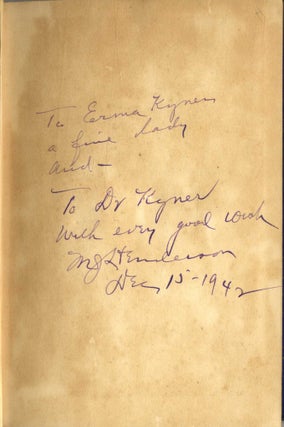 To Erma Kyner
a fine lady
and -
To Dr Kyner
With every good wish
MJ Henderson
Dec 15 - 1942